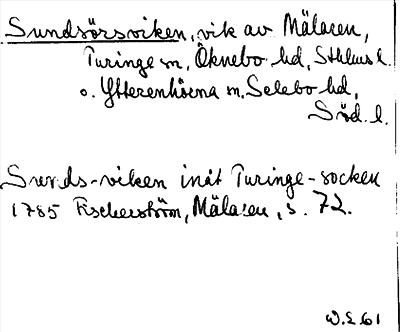 Sundsörsviken, vik av Mälaren,
Turinge sn, Öknebo hd, Sthlms l.
o. Ytterenhörna sn, Selebo hd,
Söd. l.
Sunds-viken inåt Turinge-socken
1785 Fischerström, Mälaren, s. 72.
W.E. 61